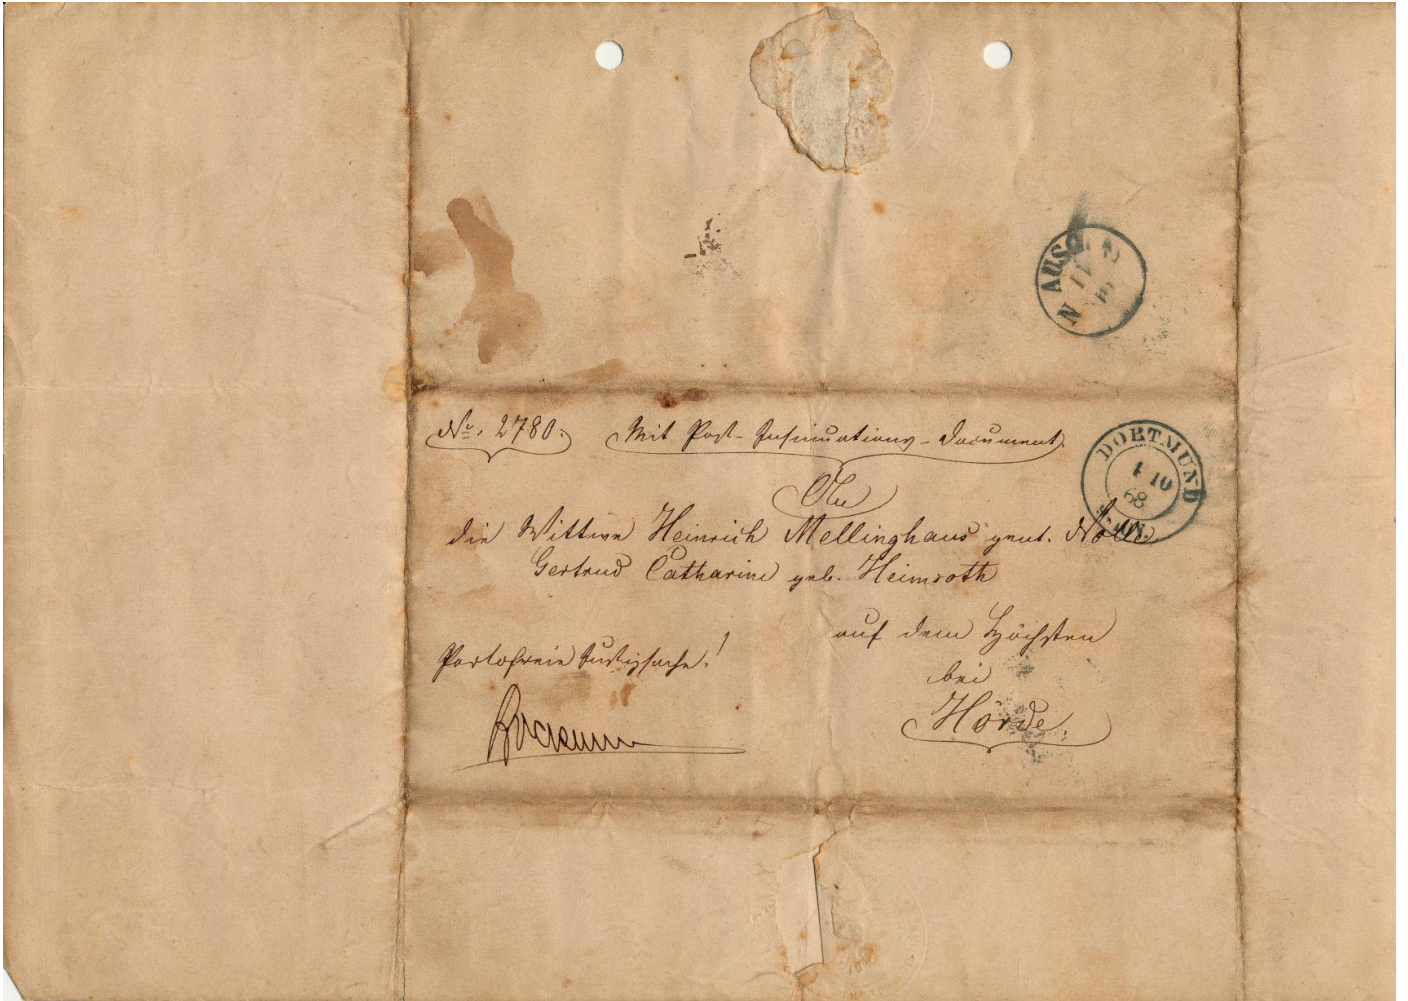 AUSG
N
No. 2780. Mit Post-Insinuations-Document.
DORTMUND
1 10
68
An
die Wittwe Heinrich Mellinghaus gent. Nolle
Gertrud Catharine geb. Heimroth
auf dem Höchsten
Portofreie Justizsache!
bei
Hörde